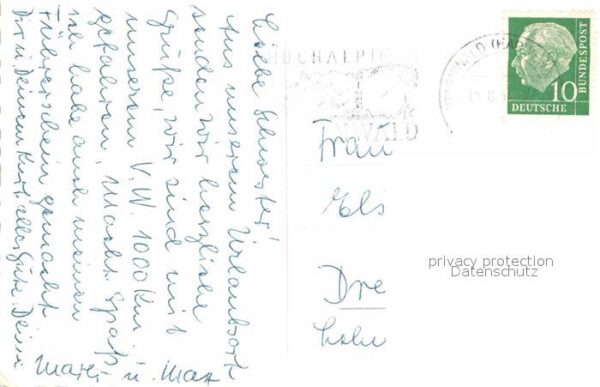 Liebe Schwester!
Aus unserem Urlaubsort
senden wir herzliche
Grüße, wir sind mit
unserem V.W. 1000 Km
gefahren, Macht Spaß
ich habe auch meinen
Führerschein gemacht
Dir u. Deinem Kurt alles Gute. Deine
u. Max
HOCHALPI
WALD
10
DEUTSCHE
BUNDESPOST
Frau
Els
Dre
privacy protection
Datenschutz